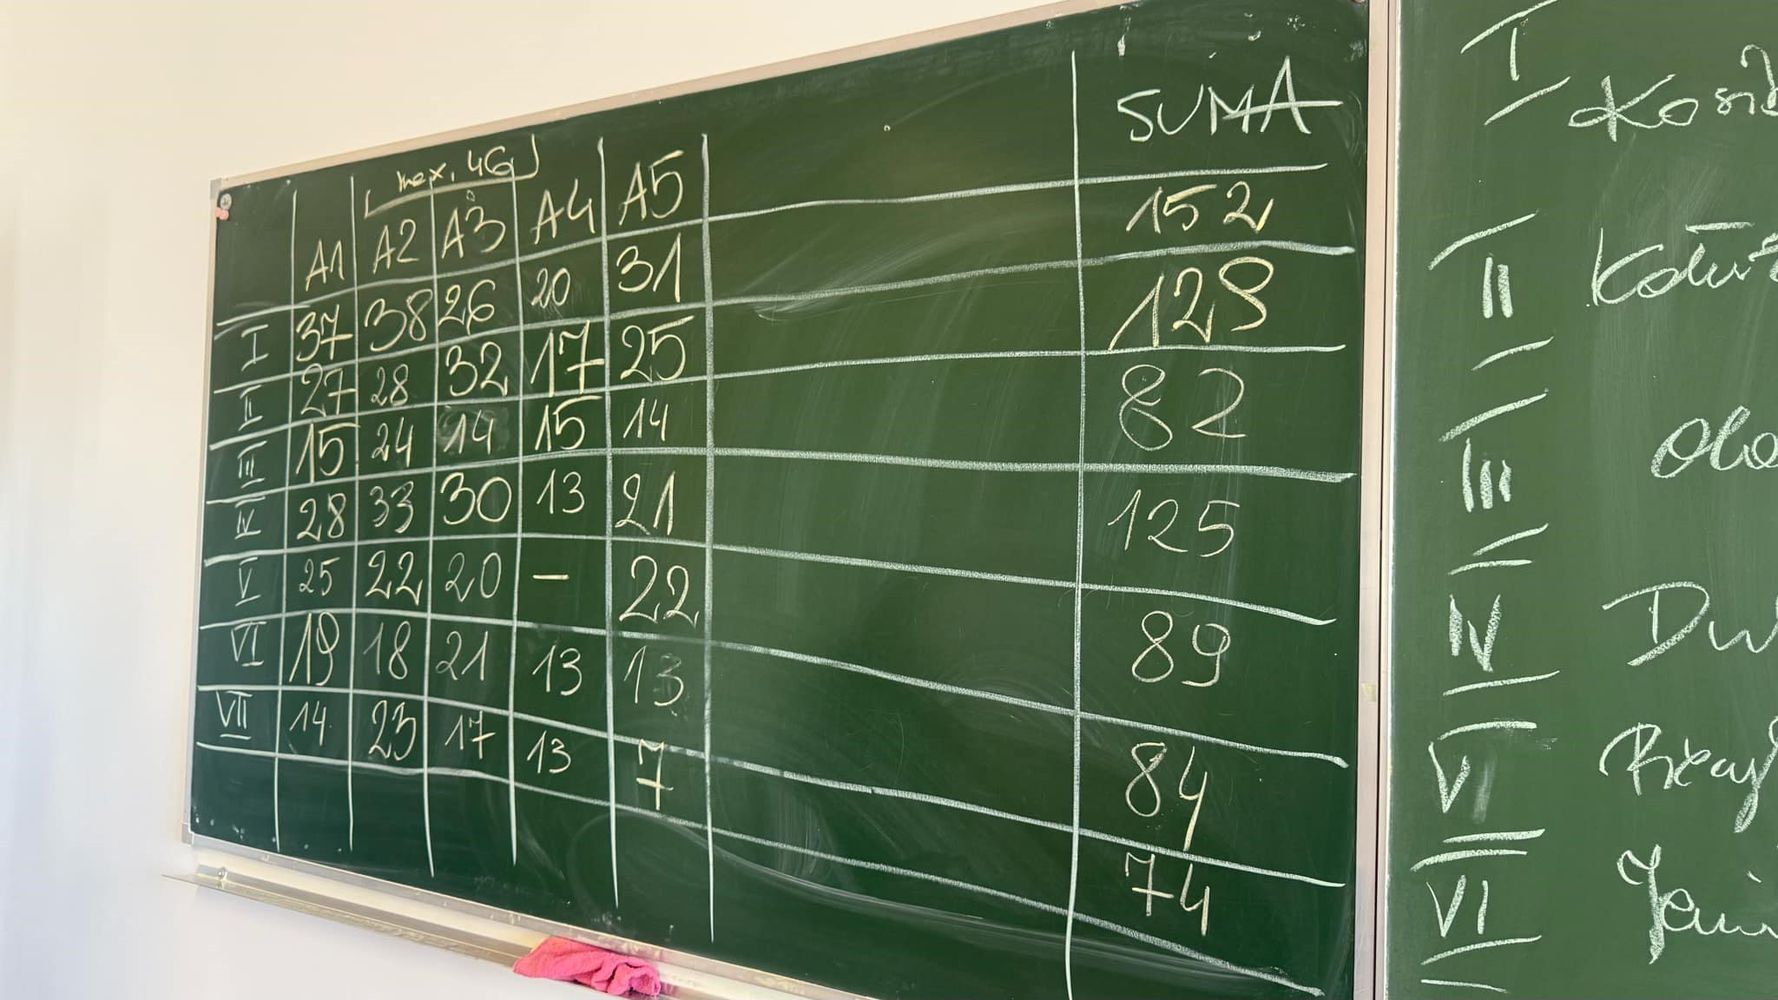 max. 46
A1 A2 A3 A4 A5 SUMA
I 37 38 26 20 31 152
II 27 28 32 17 25 129
III 15 24 14 15 14 82
IV 28 33 30 13 21 125
V 25 22 20 - 22 89
VI 19 18 21 13 13 84
VII 14 23 17 13 7 74
I
II
III
IV
V
VI